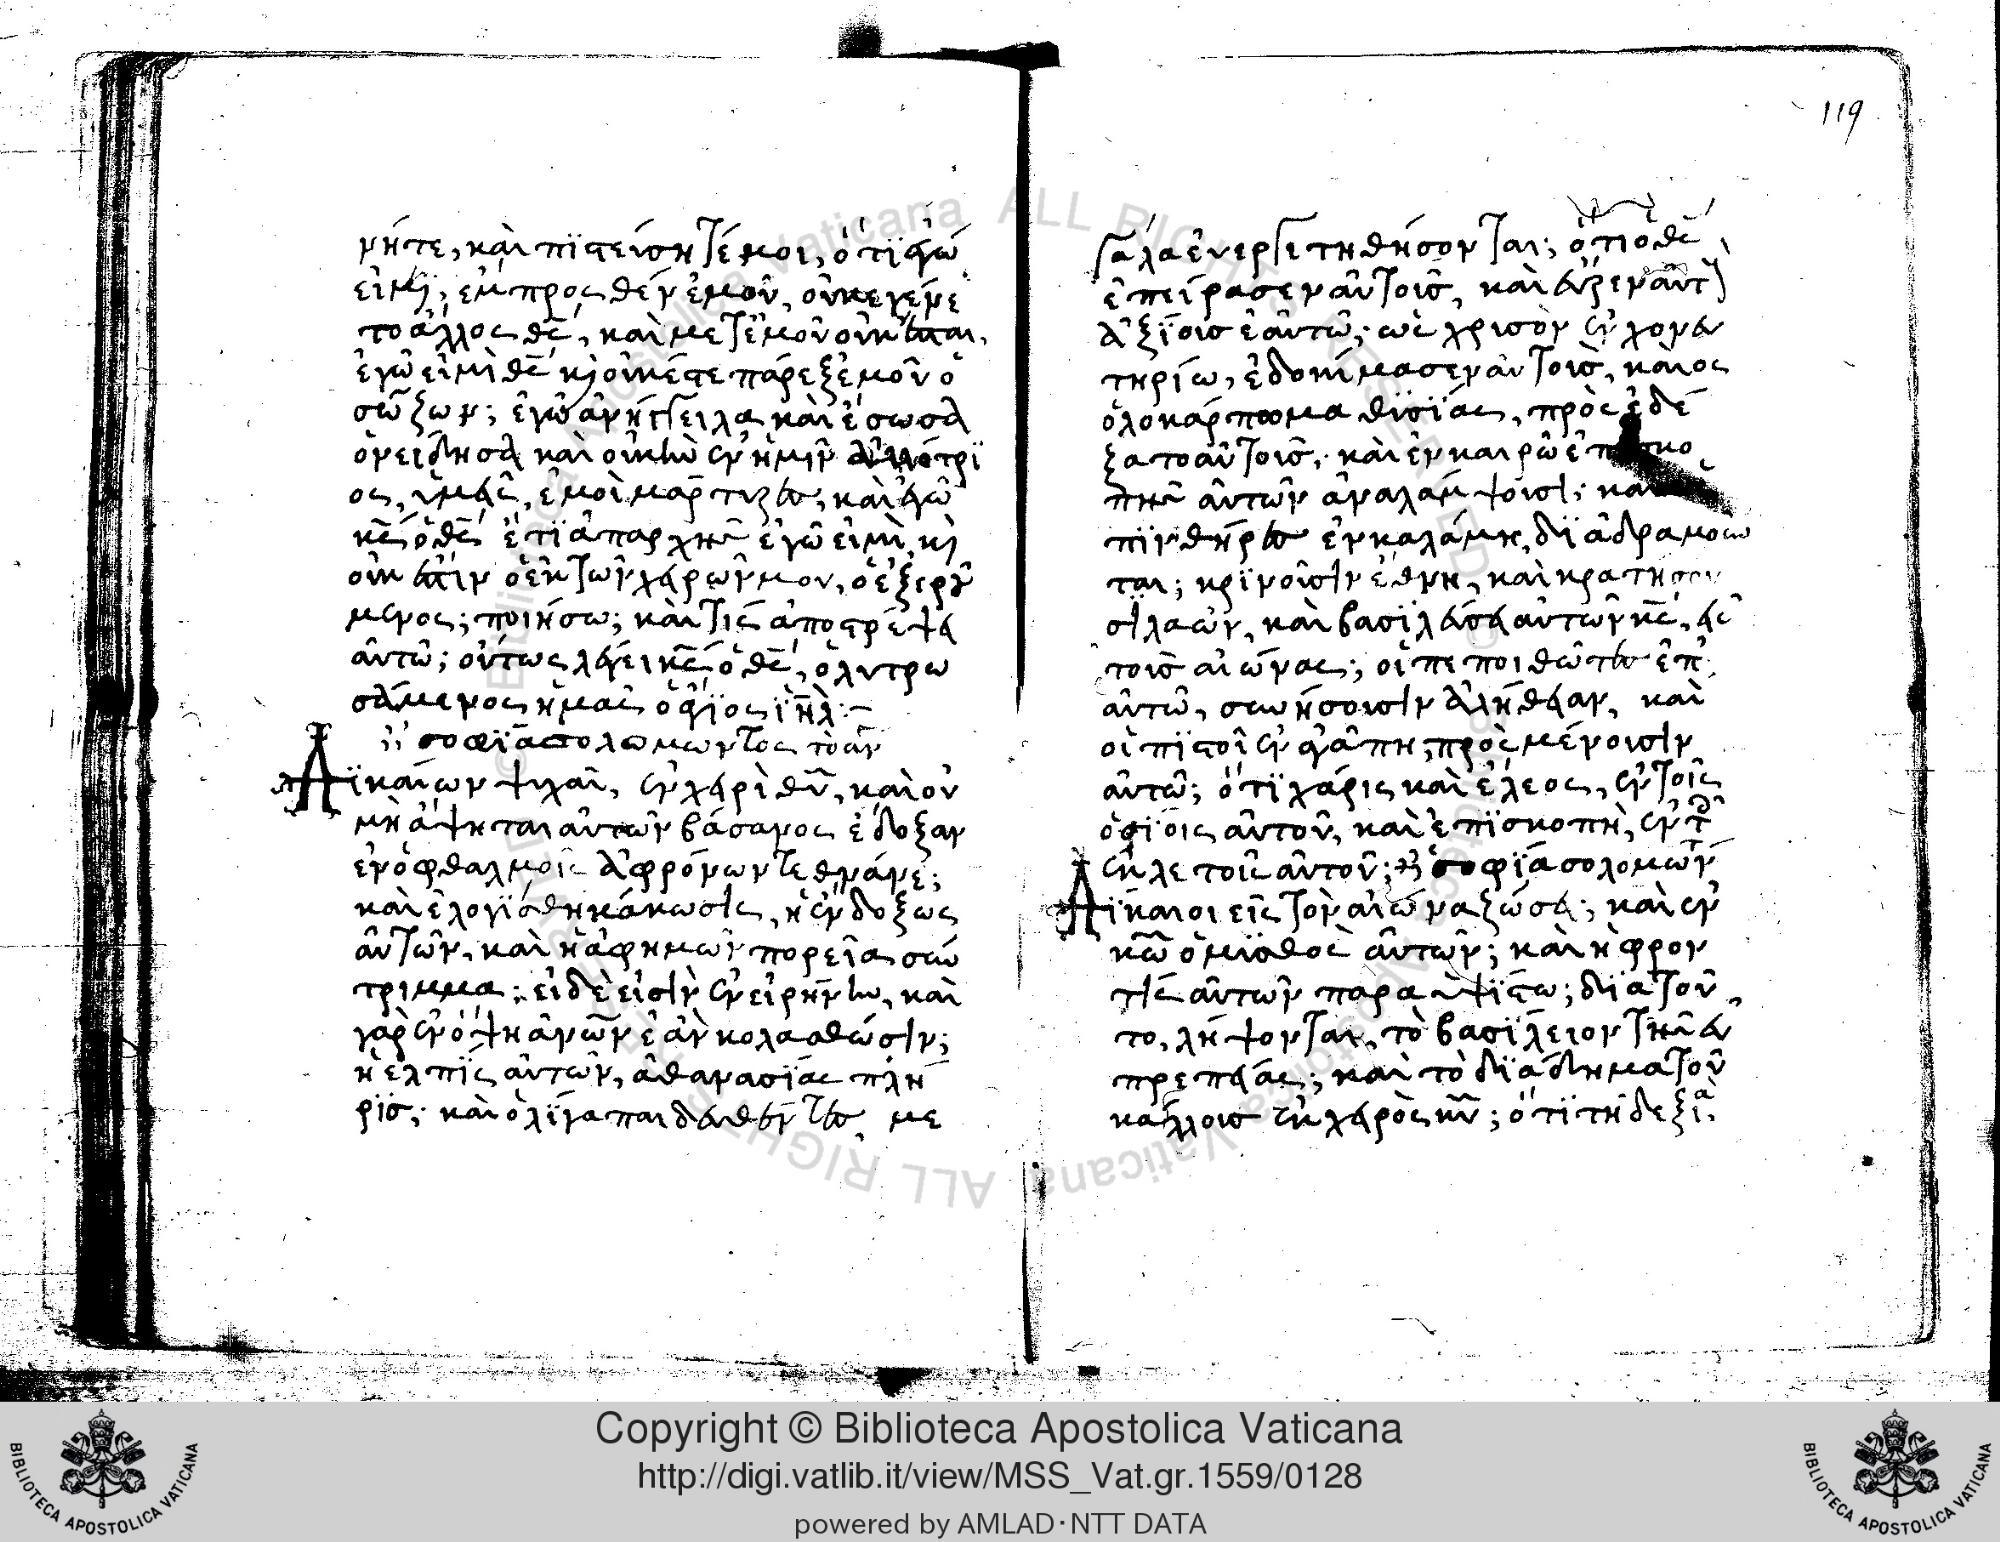 νῆτε, καὶ πϊστεύσητέ μοι, ὅτι ἐγώ
εἰμϊ; ἔμπροσθέν ἐμοῦ, οὐκ ἐγένε
το ἄλλος θς̅, καὶ μετ ἐμοῦ οὐκ ἔσται.
ἐγώ εἰμὶ θς̅ κ̀ οὐκέστε πάρεξ ἐμοῦ ὁ
σώζων; ἐγὼ ἀνήγγειλα καὶ ἔσωσα
ὀνείδησα καὶ οὐκ ἦν ἐν ἡμῖν ἀλλότρϊ
ος, ὑμεῖς, ἐμοὶ μάρτυρες; καὶ ἐγὼ
κς̅ ὁ θς̅ ἔτϊ ἀπαρχῆς ἐγώ εἰμι, κ̀
οὐκ ἔστιν ὁ ἐκ τῶν χειρῶν μου, ὁ ἐξερού
μενος; ποιήσω; καὶ τίς ἀποστρέψει
αὐτῶ; οὕτως λέγει κς̅ ὁ θς̅, ὁ λυτρω
σάμενος ἡμᾶς ὁ ἅγϊος ἰη̅λ:
σοφϊας σολομωντος τὸ ἀν
Δϊκαίων ψυχαὶ, ἐν χειρὶ θυ̅, καὶ οὐ
μὴ ἅψηται αὐτῶν βάσανος ἔδοξαν
ἐν ὀφθαλμοῖς ἀφρόνων τεθνάναι;
καὶ ἐλογίσθη κάκωσις, ἡ ἔνδοξως
αὐτῶν, καὶ ἡ ἀφημῶν πορεία σύν
τριμμα; εἰ δὲ εἰσὶν ἐν εἰρήνη, καὶ
γὰρ ἐν ὄψη ἀνων̅ ἐὰν κολασθῶσιν;
ἡ ἐλπὶς αὐτῶν, ἀθανασίας πλή
ρϊς; καὶ ὀλίγα παιδευθέντες, με
γάλα ἐυεργετηθήσονται; ὅτι ὁ θς̅
ἐπείρασεν αὐτοὺς, καὶ εὗρεν αὐτοὺς
ἀξϊους ἑαυτῶ; ὡς χρισὸν ἐν χονευ
τηρίω, ἐδοκίμασεν αὐτοὺς, καὶ ὡς
ὁλοκάρπωμα θϊσϊας, προσεδέ
ξατο αὐτοὺς, καὶ ἐν καιρῶ ἐπισκο
πῆς αὐτῶν ἀναλάμψουσι; καὶ ὡς
σπϊνθῆρες ἐν καλάμη, δϊαδραμοῦν
ται; κρϊνοῦσιν ἔθνη, καὶ κρατήσου
σι λαῶν, καὶ βασϊλεύσει αὐτῶν κς̅, εἰς
τοὺς αἰῶνας; οἱ πεποιθῶτες ἐπ
αὐτῶ, συνήσουσιν ἀλήθειαν, καὶ
οἱ πϊστοὶ ἐν ἀγάπη, προσμένουσιν
αὐτῶ; ὅτϊ χάρις καὶ ἔλεος, ἐν τοῖς
ὁσϊοις αὐτοῦ, καὶ ἐπϊσκοπὴ, ἐν τοῖς
ἐκλετοῖς αὐτοῦ; σοφϊα σολομῶν
Δϊκαιοι εἰς τὸν αἰῶνα ζῶσι; καὶ ἐν
κω̅ ὁ μϊσθὸς αὐτῶν; καὶ ἡ φρον
τὶς αὐτῶν παρα ὑψϊστω; δϊα τοῦ
το, λήψονται, τὸ βασίλειον τῆς εὐ
πρεπείας; καὶ τὸ δϊάδημα τοῦ
κάλλους ἐκ χειρὸς κυ̅; ὅτϊ τῆ δεξϊᾶ
119
Copyright © Biblioteca Apostolica Vaticana
http://digi.vatlib.it/view/MSS_Vat.gr.1559/0128
powered by AMLAD·NTT DATA
BIBLIOTECA APOSTOLICA VATICANA
BIBLIOTECA APOSTOLICA VATICANA